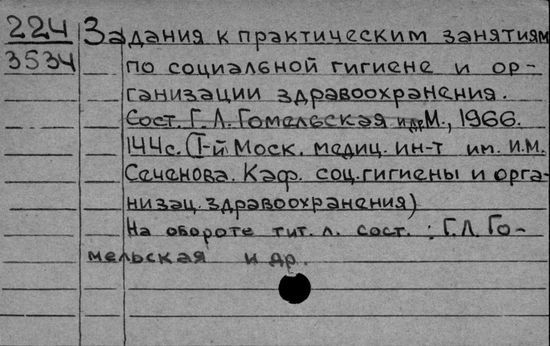 224 Задания к практическим занятиям
3534 по социальной гигиене и ор-
ганизации здравоохранения.
Сост. Г.Л. Гомельская и др. М., 1966.
144с. (I-й Моск. медиц. ин-т им. И.М.
Сеченова. Каф. соц. гигиены и орга-
низац. здравоохранения)
На обороте тит. л. сост. : Г.Л. Го-
мельская и др.